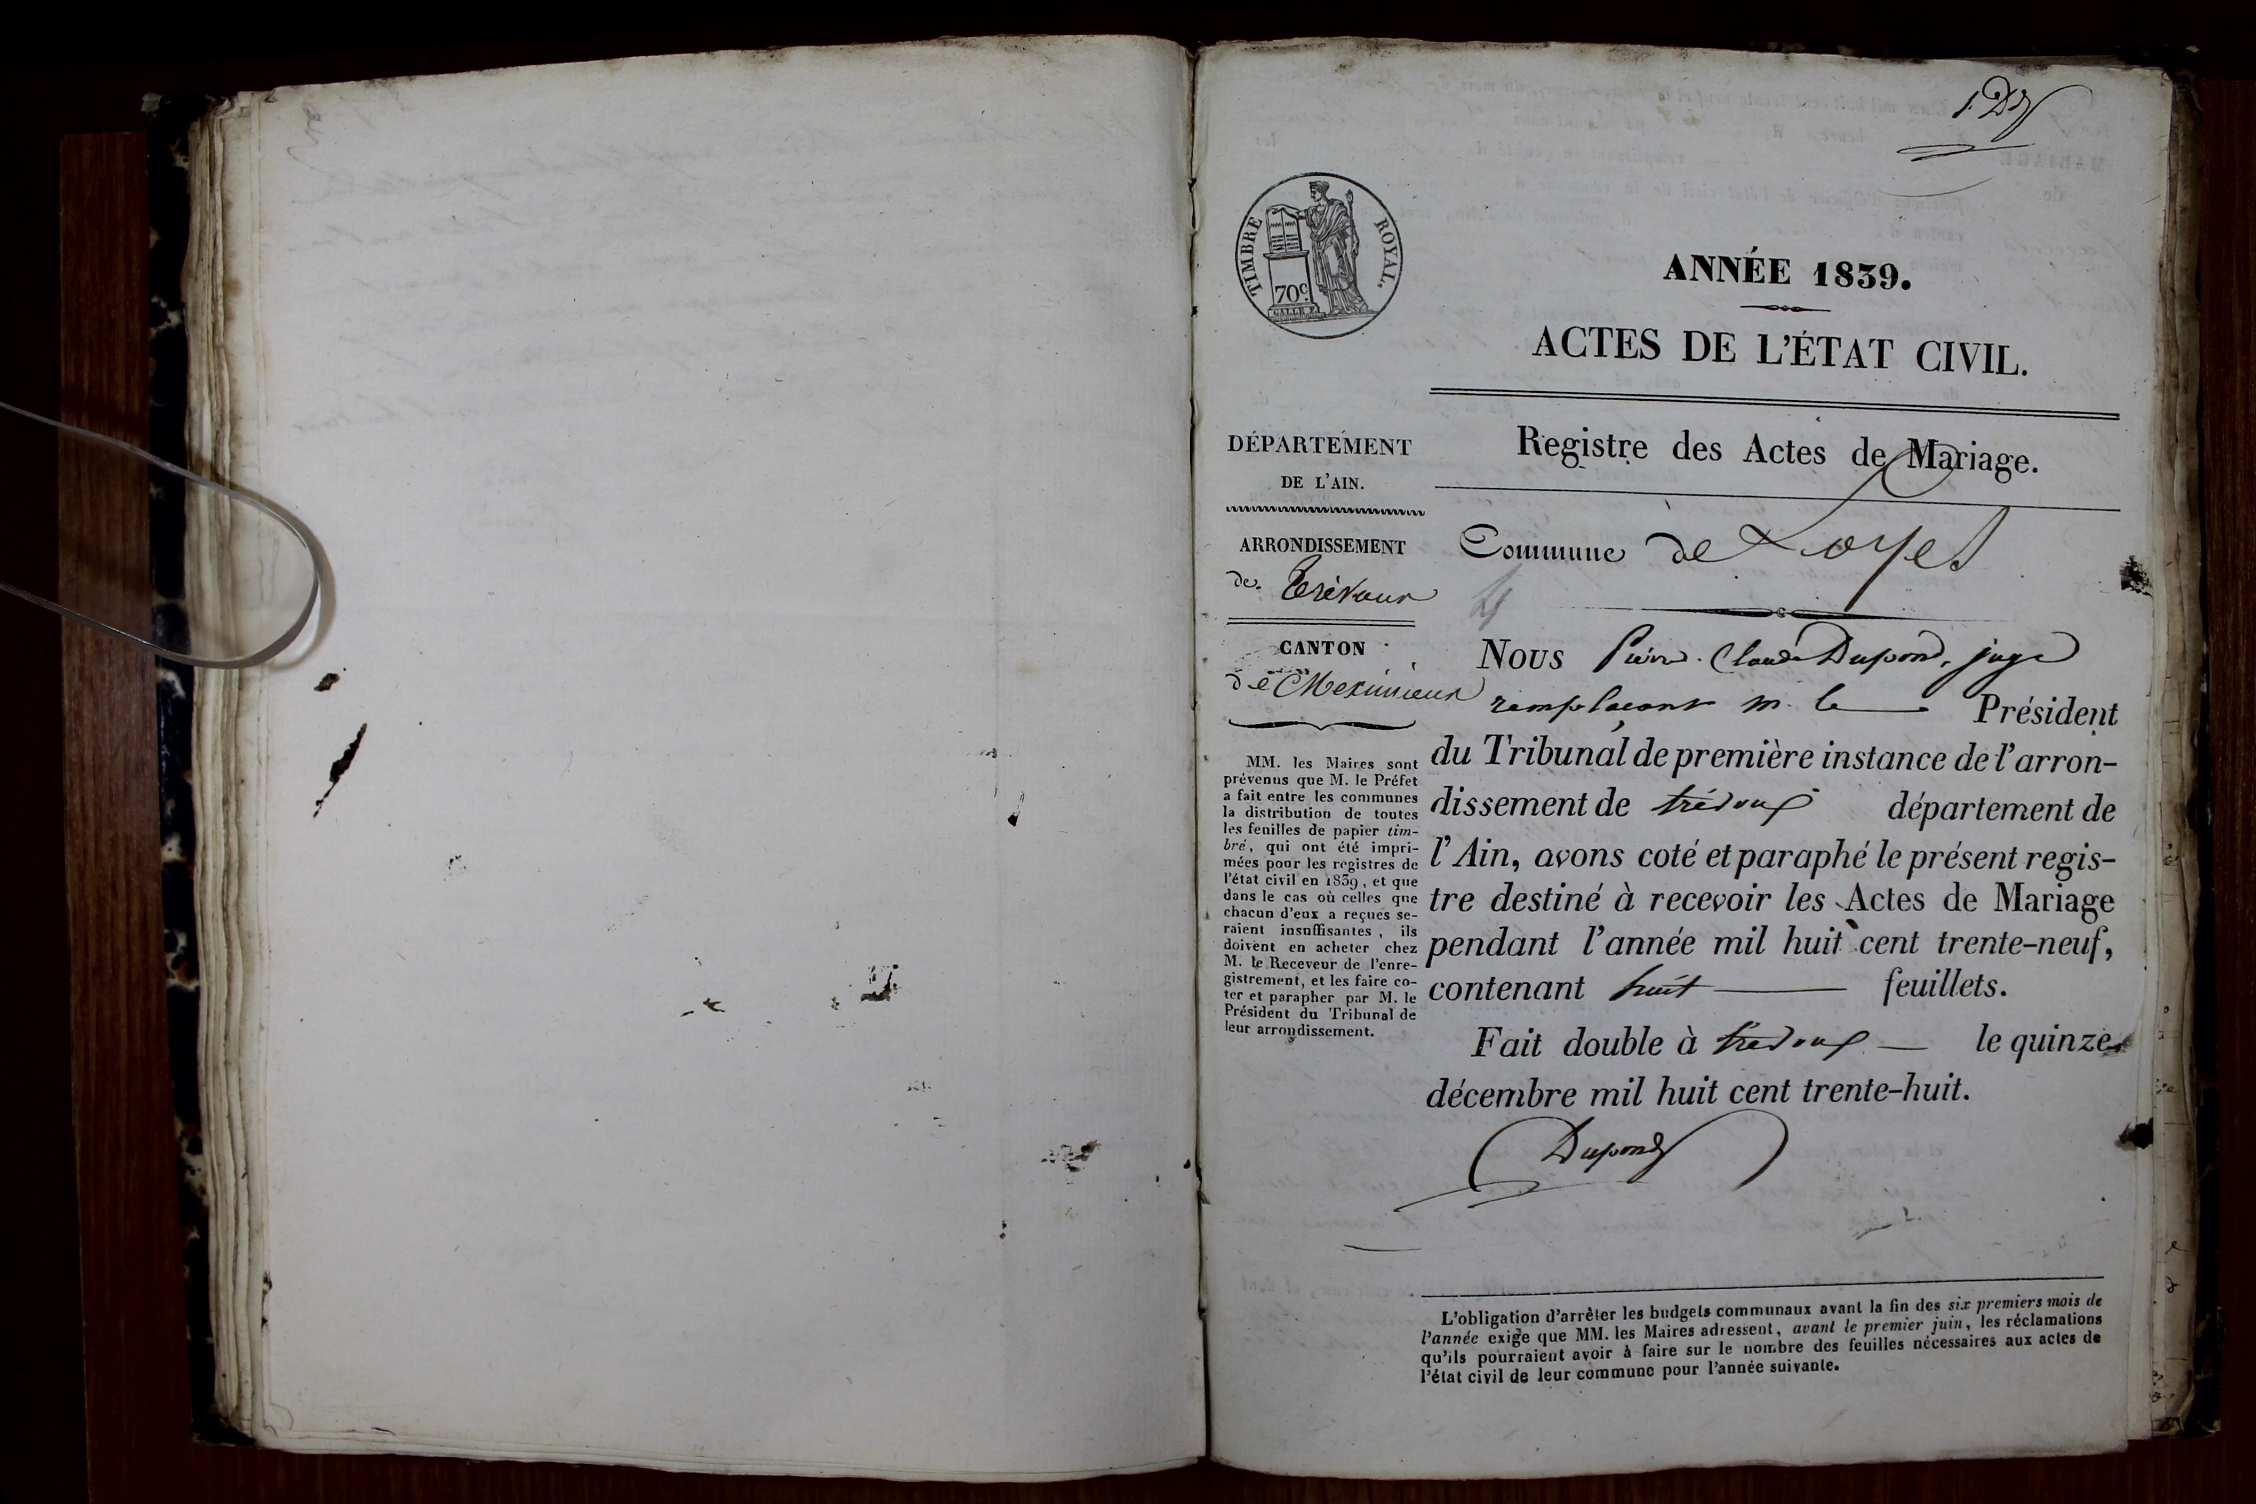 1. Dd
TIMBRE ROYAL.
70c
GALLE F.
ANNÉE 1839.
ACTES DE L'ÉTAT CIVIL.
DÉPARTEMENT
DE L'AIN.
ARRONDISSEMENT
de Trévoux
CANTON
de Meximieux
MM. les Maires sont
prévenus que M. le Préfet
a fait entre les communes
la distribution de toutes
les feuilles de papier tim-
bré, qui ont été impri-
mées pour les registres de
l'état civil en 1839, et que
dans le cas où celles que
chacun d'eux a reçues se-
raient insuffisantes, ils
doivent en acheter chez
M. le Receveur de l'enre-
gistrement, et les faire co-
ter et parapher par M. le
Président du Tribunal de
leur arrondissement.
Registre des Actes de Mariage.
Commune de Loyes
Nous Pierre Claude Dupond, juge
remplaçant m. le Président
du Tribunal de première instance de l'arron-
dissement de trévoux département de
l'Ain, avons coté et paraphé le présent regis-
tre destiné à recevoir les Actes de Mariage
pendant l'année mil huit cent trente-neuf,
contenant huit feuillets.
Fait double à trévoux le quinze
décembre mil huit cent trente-huit.
Dupond
L'obligation d'arrêter les budgets communaux avant la fin des six premiers mois de
l'année exige que MM. les Maires adressent, avant le premier juin, les réclamations
qu'ils pourraient avoir à faire sur le nombre des feuilles nécessaires aux actes de
l'état civil de leur commune pour l'année suivante.